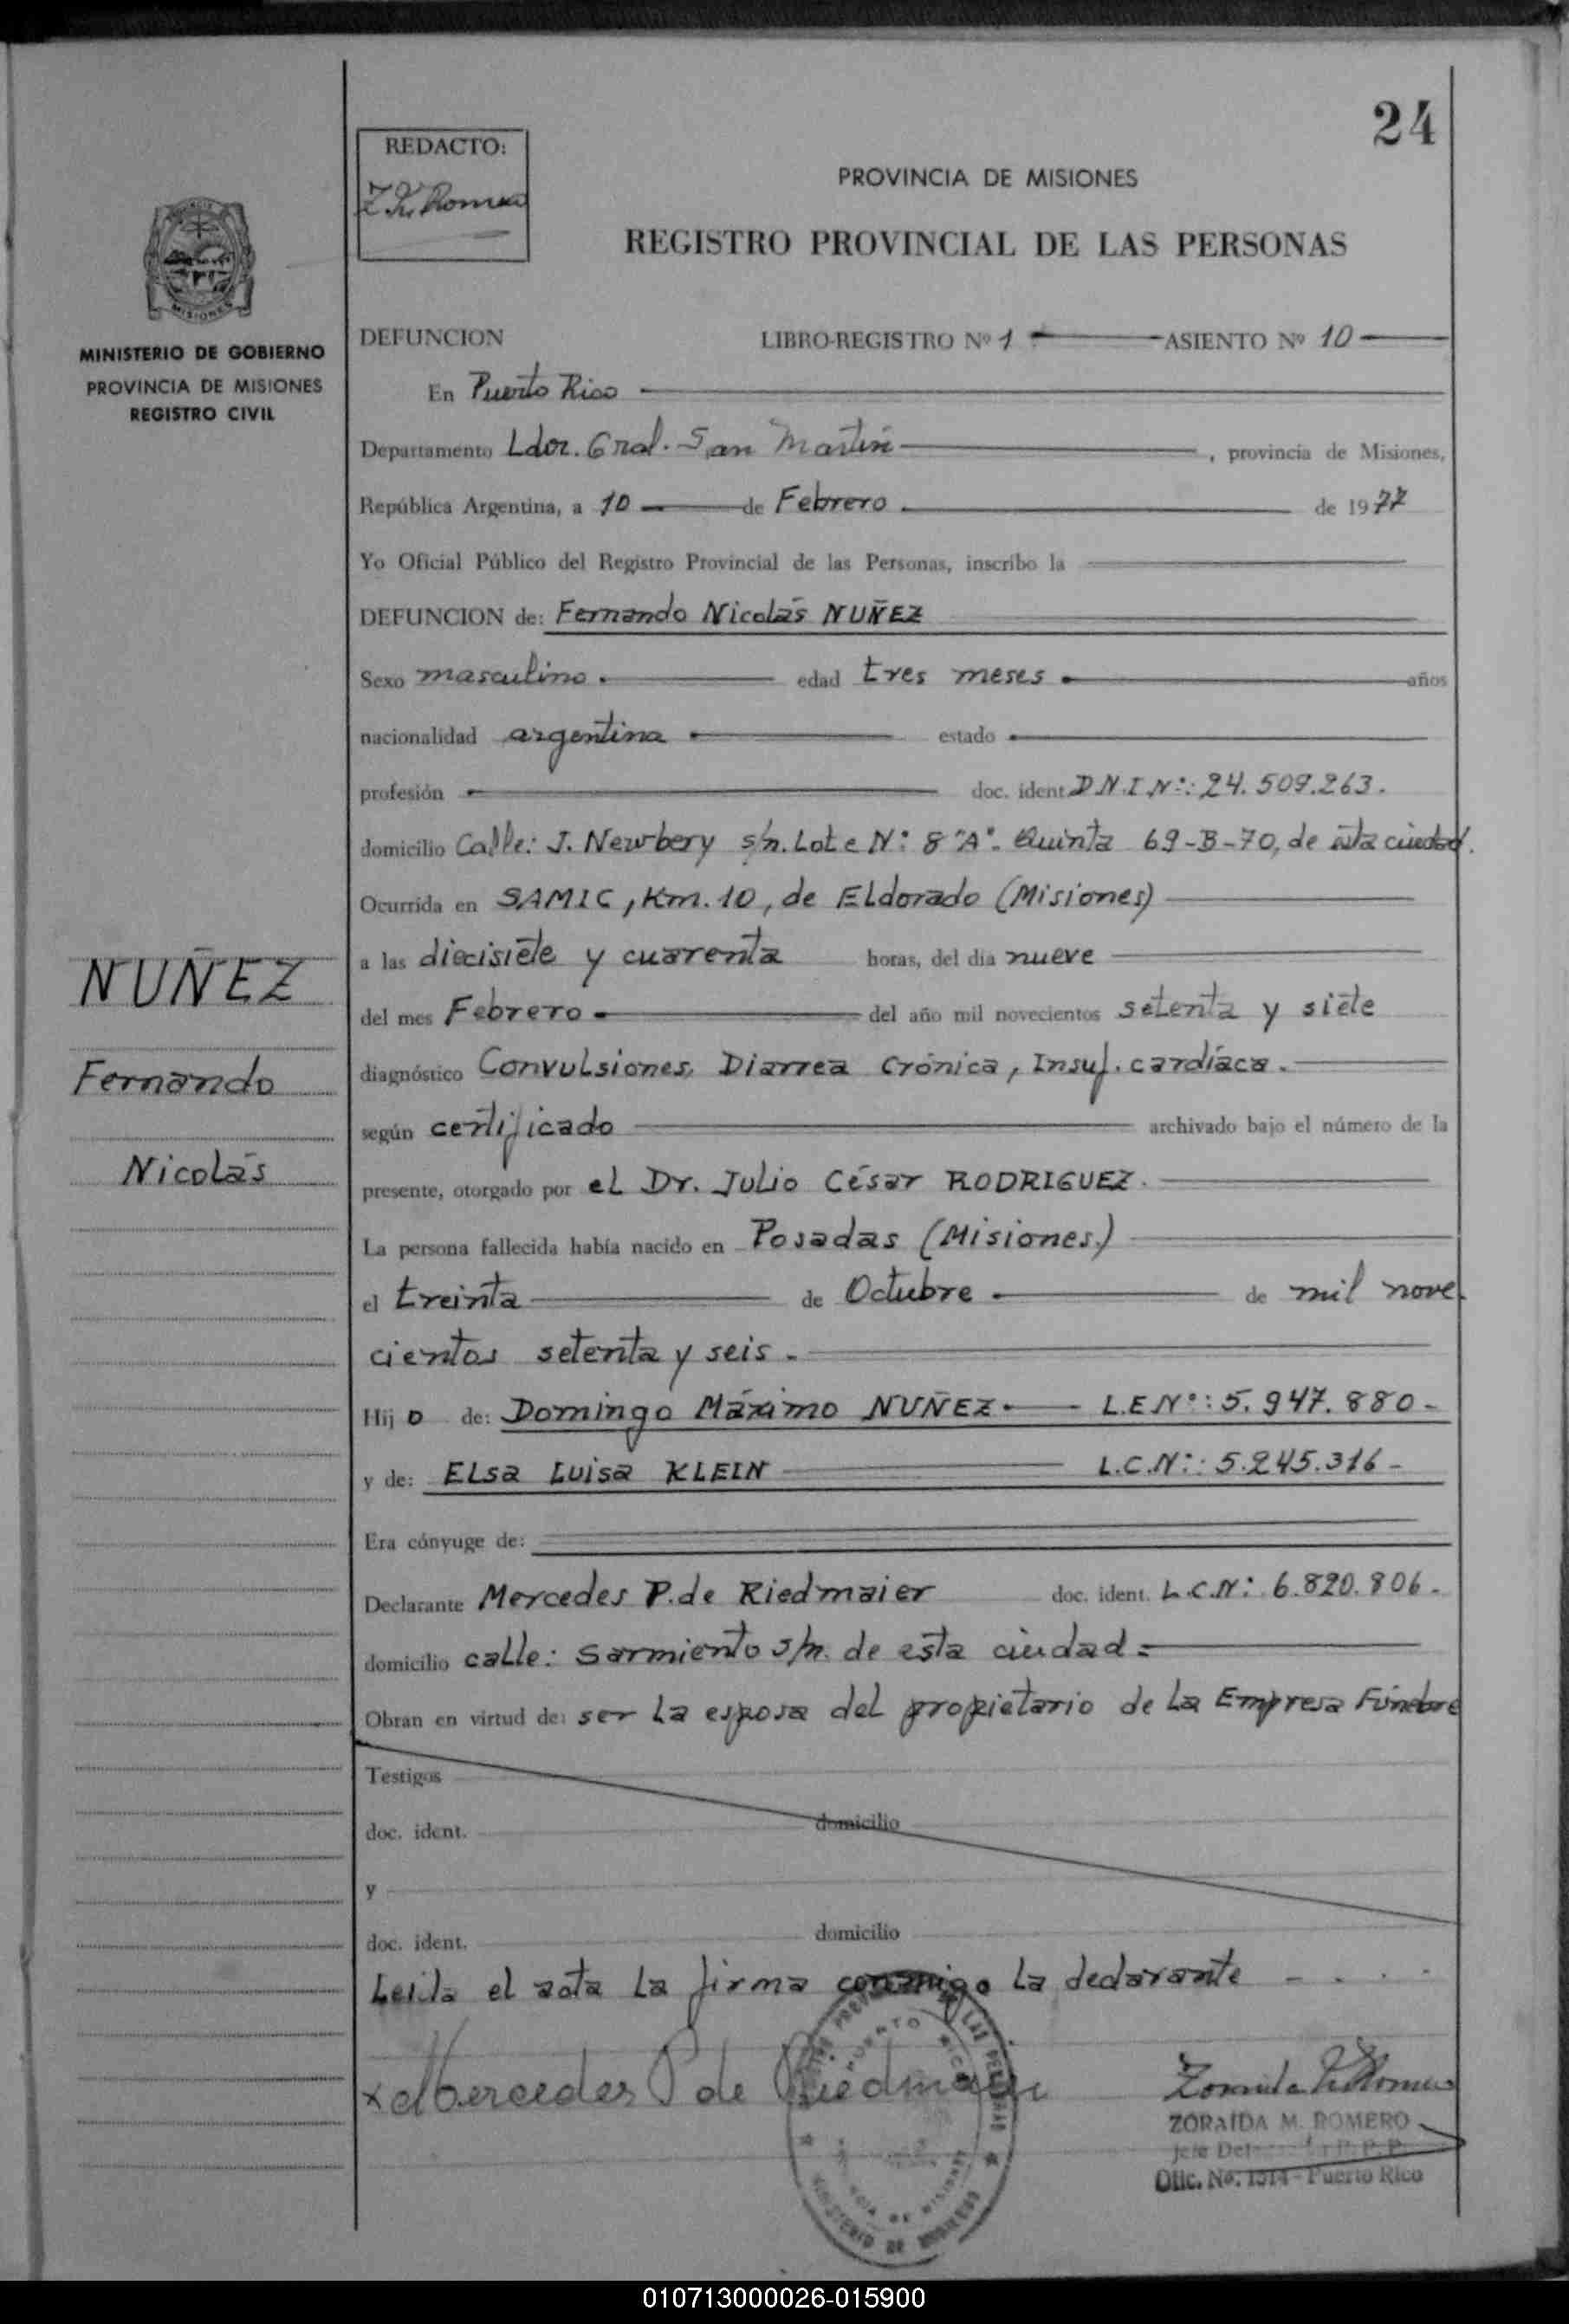 24
REDACTO:
PROVINCIA DE MISIONES
REGISTRO PROVINCIAL DE LAS PERSONAS
MISIONES
MINISTERIO DE GOBIERNO
PROVINCIA DE MISIONES
REGISTRO CIVIL
NUÑEZ
Fernando
Nicolás
DEFUNCION LIBRO-REGISTRO Nº 1 ASIENTO Nº 10
En Puerto Rico
Departamento Ldor. Gral. San Martín, provincia de Misiones,
República Argentina, a 10 de Febrero de 1977
Yo Oficial Público del Registro Provincial de las Personas, inscribo la
DEFUNCION de: Fernando Nicolás NUÑEZ
Sexo masculino. edad tres meses. años
nacionalidad argentina estado
profesión doc. ident D.N.I Nº: 24.509.263.
domicilio Calle: J. Newbery s/n. Lote Nº 8 "A". Quinta 69-B-70, de esta ciudad.
Ocurrida en SAMIC, Km. 10, de Eldorado (Misiones)
a las diecisiete y cuarenta horas, del día nueve
del mes Febrero del año mil novecientos setenta y siete
diagnóstico Convulsiones, Diarrea Crónica, Insuf. cardíaca.
según certificado archivado bajo el número de la
presente, otorgado por el Dr. Julio César RODRIGUEZ.
La persona fallecida había nacido en Posadas (Misiones)
el treinta de Octubre de mil nove
cientos setenta y seis.
Hijo de: Domingo Máximo NUÑEZ L.E Nº: 5.947.880-
y de: ELsa Luisa KLEIN L.C.Nº: 5.245.316-
Era cónyuge de:
Declarante Mercedes P. de Riedmaier doc. ident. L.C.Nº: 6.820.806-
domicilio calle: Sarmiento s/n. de esta ciudad=
Obran en virtud de: ser la esposa del propietario de la Empresa Fúnebre
Testigos
doc. ident. domicilio
y
doc. ident. domicilio
Leida el acta la firma conmigo la declarante
x Mercedes P de Riedmaier
ZORAIDA M. ROMERO
Ofic. No. 1314 - Puerto Rico
010713000026-015900